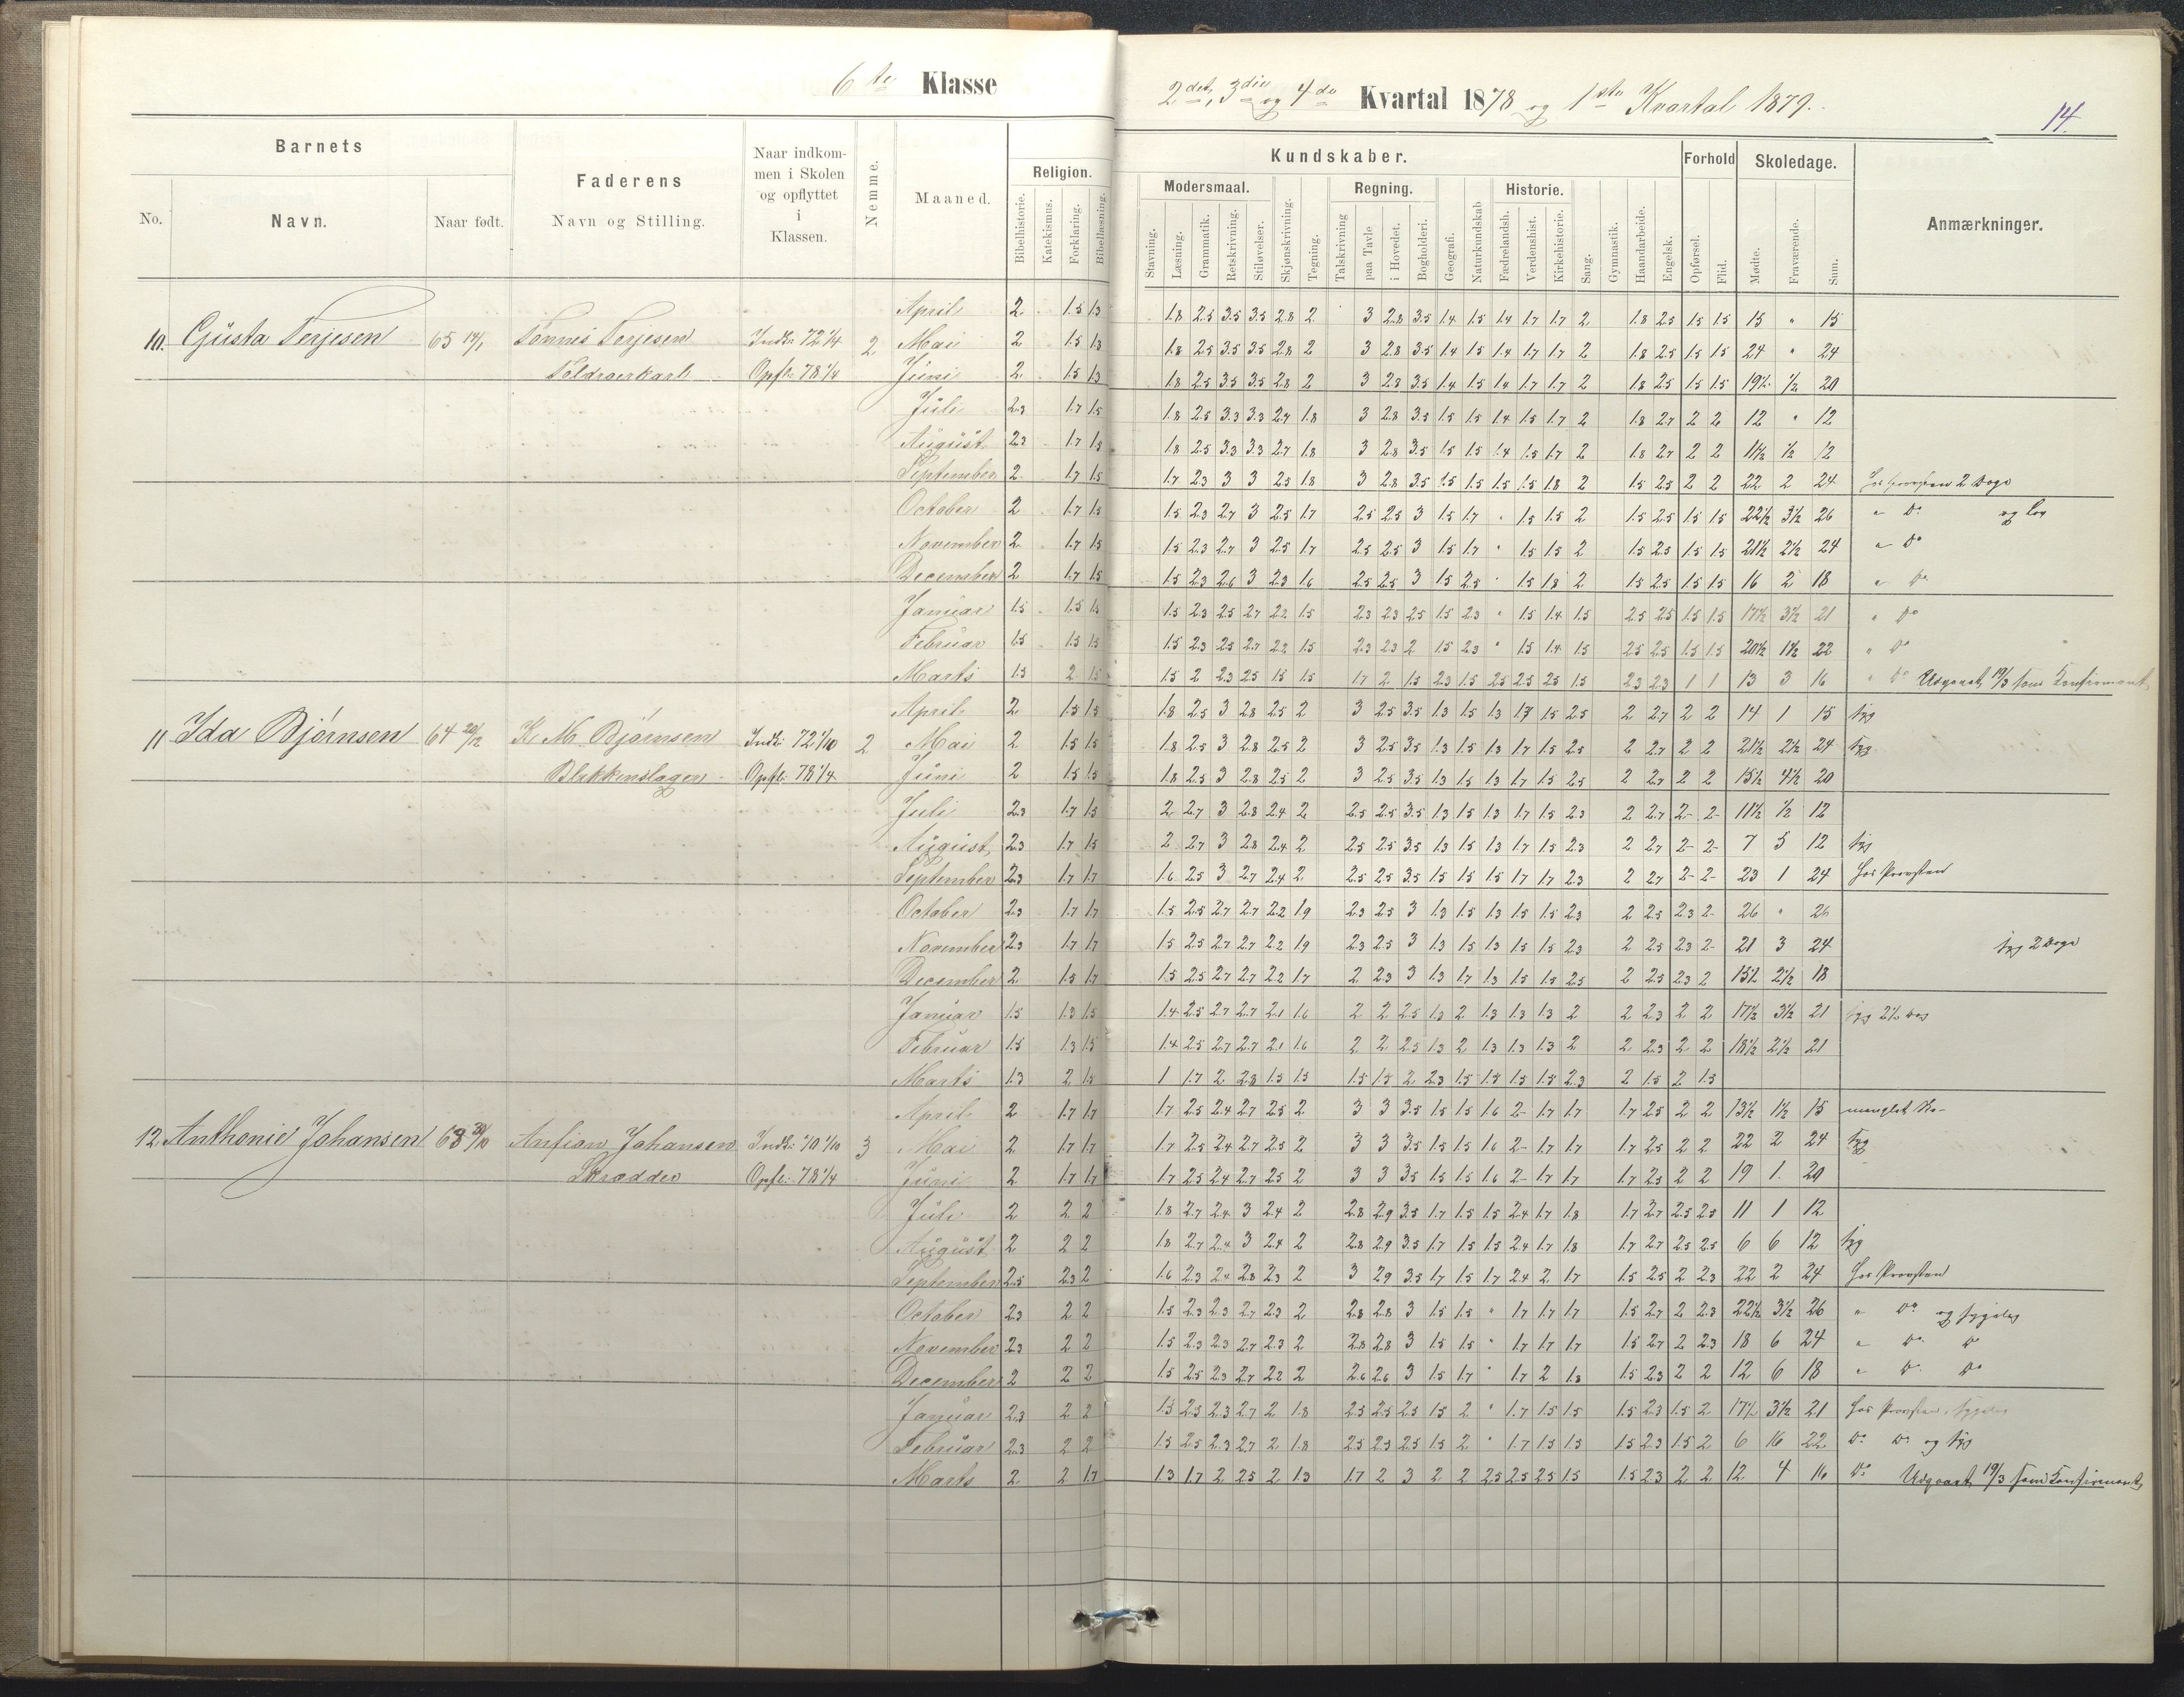 6te Klasse
2det, 3die og 4de Kvartal 1878 og 1ste Kvartal 1879.
14.
Barnets
No.
Navn.
Naar født.
Faderens
Navn og Stilling.
Naar indkom-
men i Skolen
og opflyttet
i
Klassen.
Nemme.
Maaned.
Religion.
Bibelhistorie.
Katekismus.
Forklaring.
Bibellæsning.
Kundskaber.
Modersmaal.
Stavning.
Læsning.
Grammatik.
Retskrivning.
Stiløvelser.
Skjønskrivning.
Tegning.
Regning.
Talskrivning
paa Tavle
i Hovedet.
Bogholderi.
Geografi.
Naturkundskab
Historie.
Fædrelandsh.
Verdenshist.
Kirkehistorie.
Sang.
Gymnastik.
Haandarbeide.
Engelsk.
Forhold
Opførsel.
Flid.
Skoledage.
Mødte.
Fraværende.
Sum.
Anmærkninger.
April 2 1.5 1.3 1.8 2.5 3.5 3.5 2.8 2 3 2.8 3.5 1.4 1.5 1.4 1.7 1.7 2 1.8 2.5 1.5 1.5 15 " 15
10. Gusta Terjesen 65 14/1 Tønnes Terjesen Indk: 72 1/4 2 Mai 2 1.5 1.3 1.8 2.5 3.5 3.5 2.8 2 3 2.8 3.5 1.4 1.5 1.4 1.7 1.7 2 1.8 2.5 1.5 1.5 24 " 24
Opfl: 78 1/4 Juni 2 1.5 1.3 1.8 2.5 3.5 3.5 2.8 2 3 2.8 3.5 1.4 1.5 1.4 1.7 1.7 2 1.8 2.5 1.5 1.5 19½ ½ 20
Juli 2.3 1.7 1.5 1.8 2.5 3.3 3.3 2.7 1.8 3 2.8 3.5 1.5 1.5 1.4 1.5 1.7 2 1.8 2.7 2 2 12 " 12
August 2.3 1.7 1.5 1.8 2.5 3.3 3.3 2.7 1.8 3 2.8 3.5 1.5 1.5 1.4 1.5 1.7 2 1.8 2.7 2 2 11½ ½ 12
September 2 1.7 1.5 1.7 2.3 3 3 2.5 1.8 3 2.8 3.5 1.5 1.5 1.5 1.5 1.8 2 1.5 2.5 2 2 22 2 24 hos Provsten 2 Dage
October 2 1.7 1.5 1.5 2.3 2.7 3 2.5 1.7 2.5 2.5 3 1.5 1.7 " 1.5 1.5 2 1.5 2.5 1.5 1.5 22½ 3½ 26 " Do og
November 2 1.7 1.5 1.5 2.3 2.7 3 2.5 1.7 2.5 2.5 3 1.5 1.7 " 1.5 1.5 2 1.5 2.5 1.5 1.5 21½ 2½ 24 " Do
December 2 1.7 1.5 1.5 2.3 2.6 3 2.3 1.6 2.5 2.5 3 1.5 2.5 " 1.5 1.8 2 1.5 2.5 1.5 1.5 16 2 18 " Do
Januar 1.5 1.5 1.5 1.5 2.3 2.5 2.7 2.2 1.5 2.3 2.3 2.5 1.5 2.3 " 1.5 1.4 1.5 2.5 2.5 1.5 1.5 17½ 3½ 21 " Do
Februar 1.5 1.5 1.5 1.5 2.3 2.5 2.7 2.2 1.5 2.3 2.3 2 1.5 2.3 " 1.5 1.4 1.5 2.5 2.5 1.5 1.5 20½ 1½ 22 " Do
Marts 1.5 2 1.5 1.5 2 2.3 2.5 1.5 1.5 1.7 2 1.5 2.3 1.5 2.5 2.5 2.5 1.5 2.3 2.3 1 1 13 3 16 " Do Udgaaet 19/3 som Konfirmant,
April 2 1.5 1.5 1.8 2.5 3 2.8 2.5 2 3 2.5 3.5 1.3 1.5 1.3 1.7 1.5 2.5 2 2.7 2 2 14 1 15 syg
11 Ida Bjørnsen 64 20/12 K. M. Bjørnsen Indk: 72 1/10 2 Mai 2 1.5 1.5 1.8 2.5 3 2.8 2.5 2 3 2.5 3.5 1.3 1.5 1.3 1.7 1.5 2.5 2 2.7 2 2 21½ 2½ 24 syg
Blikkenslager Opfl: 78 1/4 Juni 2 1.5 1.5 1.8 2.5 3 2.8 2.5 2 3 2.5 3.5 1.3 1.5 1.3 1.7 1.5 2.5 2 2.7 2 2 15½ 4½ 20
Juli 2.3 1.7 1.5 2 2.7 3 2.8 2.4 2 2.5 2.5 3.5 1.3 1.5 1.3 1.7 1.5 2.3 2 2.7 2- 2- 11½ ½ 12
August 2.3 1.7 1.5 2 2.7 3 2.8 2.4 2 2.5 2.5 3.5 1.3 1.5 1.3 1.7 1.5 2.3 2 2.7 2- 2- 7 5 12 syg
September 2.3 1.7 1.7 1.6 2.5 3 2.7 2.4 2 2.5 2.5 3.5 1.5 1.5 1.5 1.7 1.7 2.3 2 2.7 2- 2- 23 1 24 hos Provsten
October 2.3 1.7 1.7 1.5 2.5 2.7 2.7 2.2 1.9 2.3 2.5 3 1.3 1.5 1.3 1.5 1.5 2.3 2 2.5 2.3 2- 26 " 26
November 2.3 1.7 1.7 1.5 2.5 2.7 2.7 2.2 1.9 2.3 2.5 3 1.3 1.5 1.3 1.5 1.5 2.3 2 2.5 2.3 2- 21 3 24 syg 2 Dage
December 2 1.5 1.7 1.5 2.5 2.7 2.7 2.2 1.7 2 2.3 3 1.3 1.7 1.3 1.5 1.5 2.5 2 2.5 2.3 2 15½ 2½ 18
Januar 1.5 1.3 1.5 1.4 2.5 2.7 2.7 2.1 1.6 2 2 2.5 1.3 2 1.3 1.3 1.3 2 2 2.3 2 2 17½ 3½ 21 syg 2½ Dag
Februar 1.5 1.3 1.5 1.4 2.5 2.7 2.7 2.1 1.6 2 2 2.5 1.3 2 1.3 1.3 1.3 2 2 2.3 2 2 18½ 2½ 21
Marts 1.3 2 1.5 1 1.7 2 2.3 1.5 1.5 1.5 1.5 2 2.3 1.5 1.5 1.5 1.5 2.3 2 1.5 2 1.5
April 2 1.7 1.7 1.7 2.5 2.4 2.7 2.5 2 3 3 3.5 1.5 1.5 1.6 2- 1.7 1.7 1.7 2.5 2 2 13½ 1½ 15 manglet Sko-
12. Anthonie Johansen 63 20/10 Anfian Johansen Indk: 70 1/10 3 Mai 2 1.7 1.7 1.7 2.5 2.4 2.7 2.5 2 3 3 3.5 1.5 1.5 1.6 2- 1.7 1.7 1.7 2.5 2 2 22 2 24 syg
Skrædder Opfl: 78 1/4 Juni 2 1.7 1.7 1.7 2.5 2.4 2.7 2.5 2 3 3 3.5 1.5 1.5 1.6 2- 1.7 1.7 1.7 2.5 2 2 19 1 20
Juli 2 2 2 1.8 2.7 2.4 3 2.4 2 2.8 2.9 3.5 1.7 1.5 1.5 2.4 1.7 1.8 1.7 2.7 2.5 2.5 11 1 12
August 2 2 2 1.8 2.7 2.4 3 2.4 2 2.8 2.9 3.5 1.7 1.5 1.5 2.4 1.7 1.8 1.7 2.7 2.5 2.5 6 6 12 syg
September 2.5 2.3 2 1.6 2.3 2.4 2.8 2.3 2 3 2.9 3.5 1.7 1.5 1.7 2.4 2 1.7 1.5 2.5 2 2.3 22 2 24 hos Provsten
October 2.3 2 2 1.5 2.3 2.3 2.7 2.3 2 2.8 2.8 3 1.5 1.5 " 1.7 1.7 1.7 1.5 2.7 2 2.3 22½ 3½ 26 " Do og sygelig
November 2.3 2 2 1.5 2.3 2.3 2.7 2.3 2 2.8 2.8 3 1.5 1.5 " 1.7 1.7 1.7 1.5 2.7 2 2.3 18 6 24 " Do Do
December 2 2 2 1.5 2.5 2.3 2.7 2.2 2 2.6 2.6 3 1.5 1.7 " 1.7 2 1.8 1.5 2.3 2 2 12 6 18 " Do Do
Januar 2.3 2 2 1.5 2.5 2.3 2.7 2 1.8 2.5 2.5 2.5 1.5 2 " 1.7 1.5 1.5 1.5 2.3 1.5 2 17½ 3½ 21 hos Provsten, sygelig
Februar 2.3 2 2 1.5 2.5 2.3 2.7 2 1.8 2.5 2.5 2.5 1.5 2 " 1.7 1.5 1.5 1.5 2.3 1.5 2 6 16 22 Do Do og syg
Marts 2 2 1.7 1.3 1.7 2 2.5 2 1.3 1.7 2 3 2 2 2.5 2.5 2.5 1.5 1.5 2.3 2 2 12 4 16 Do Udgaaet 19/3 som Konfirmant,